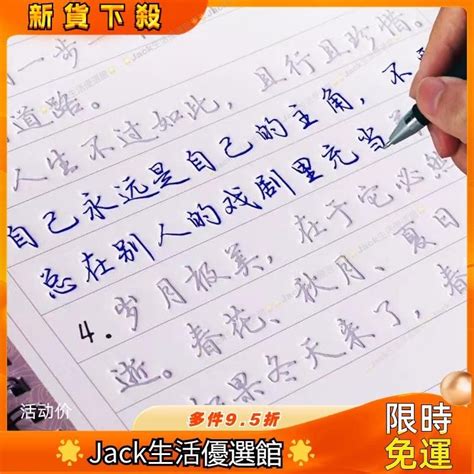 新貨下殺
一步
道路。
人生不过如此，且行且珍惜。
自己永远是自己的主角，不
总在别人的戏剧里充当
4.岁月极美，在于它必然
逝。春花、秋月、夏日
如果冬天来了，春
Jack生活優選館
活动价
多件9.5折
限時
免運
Jack生活優選館